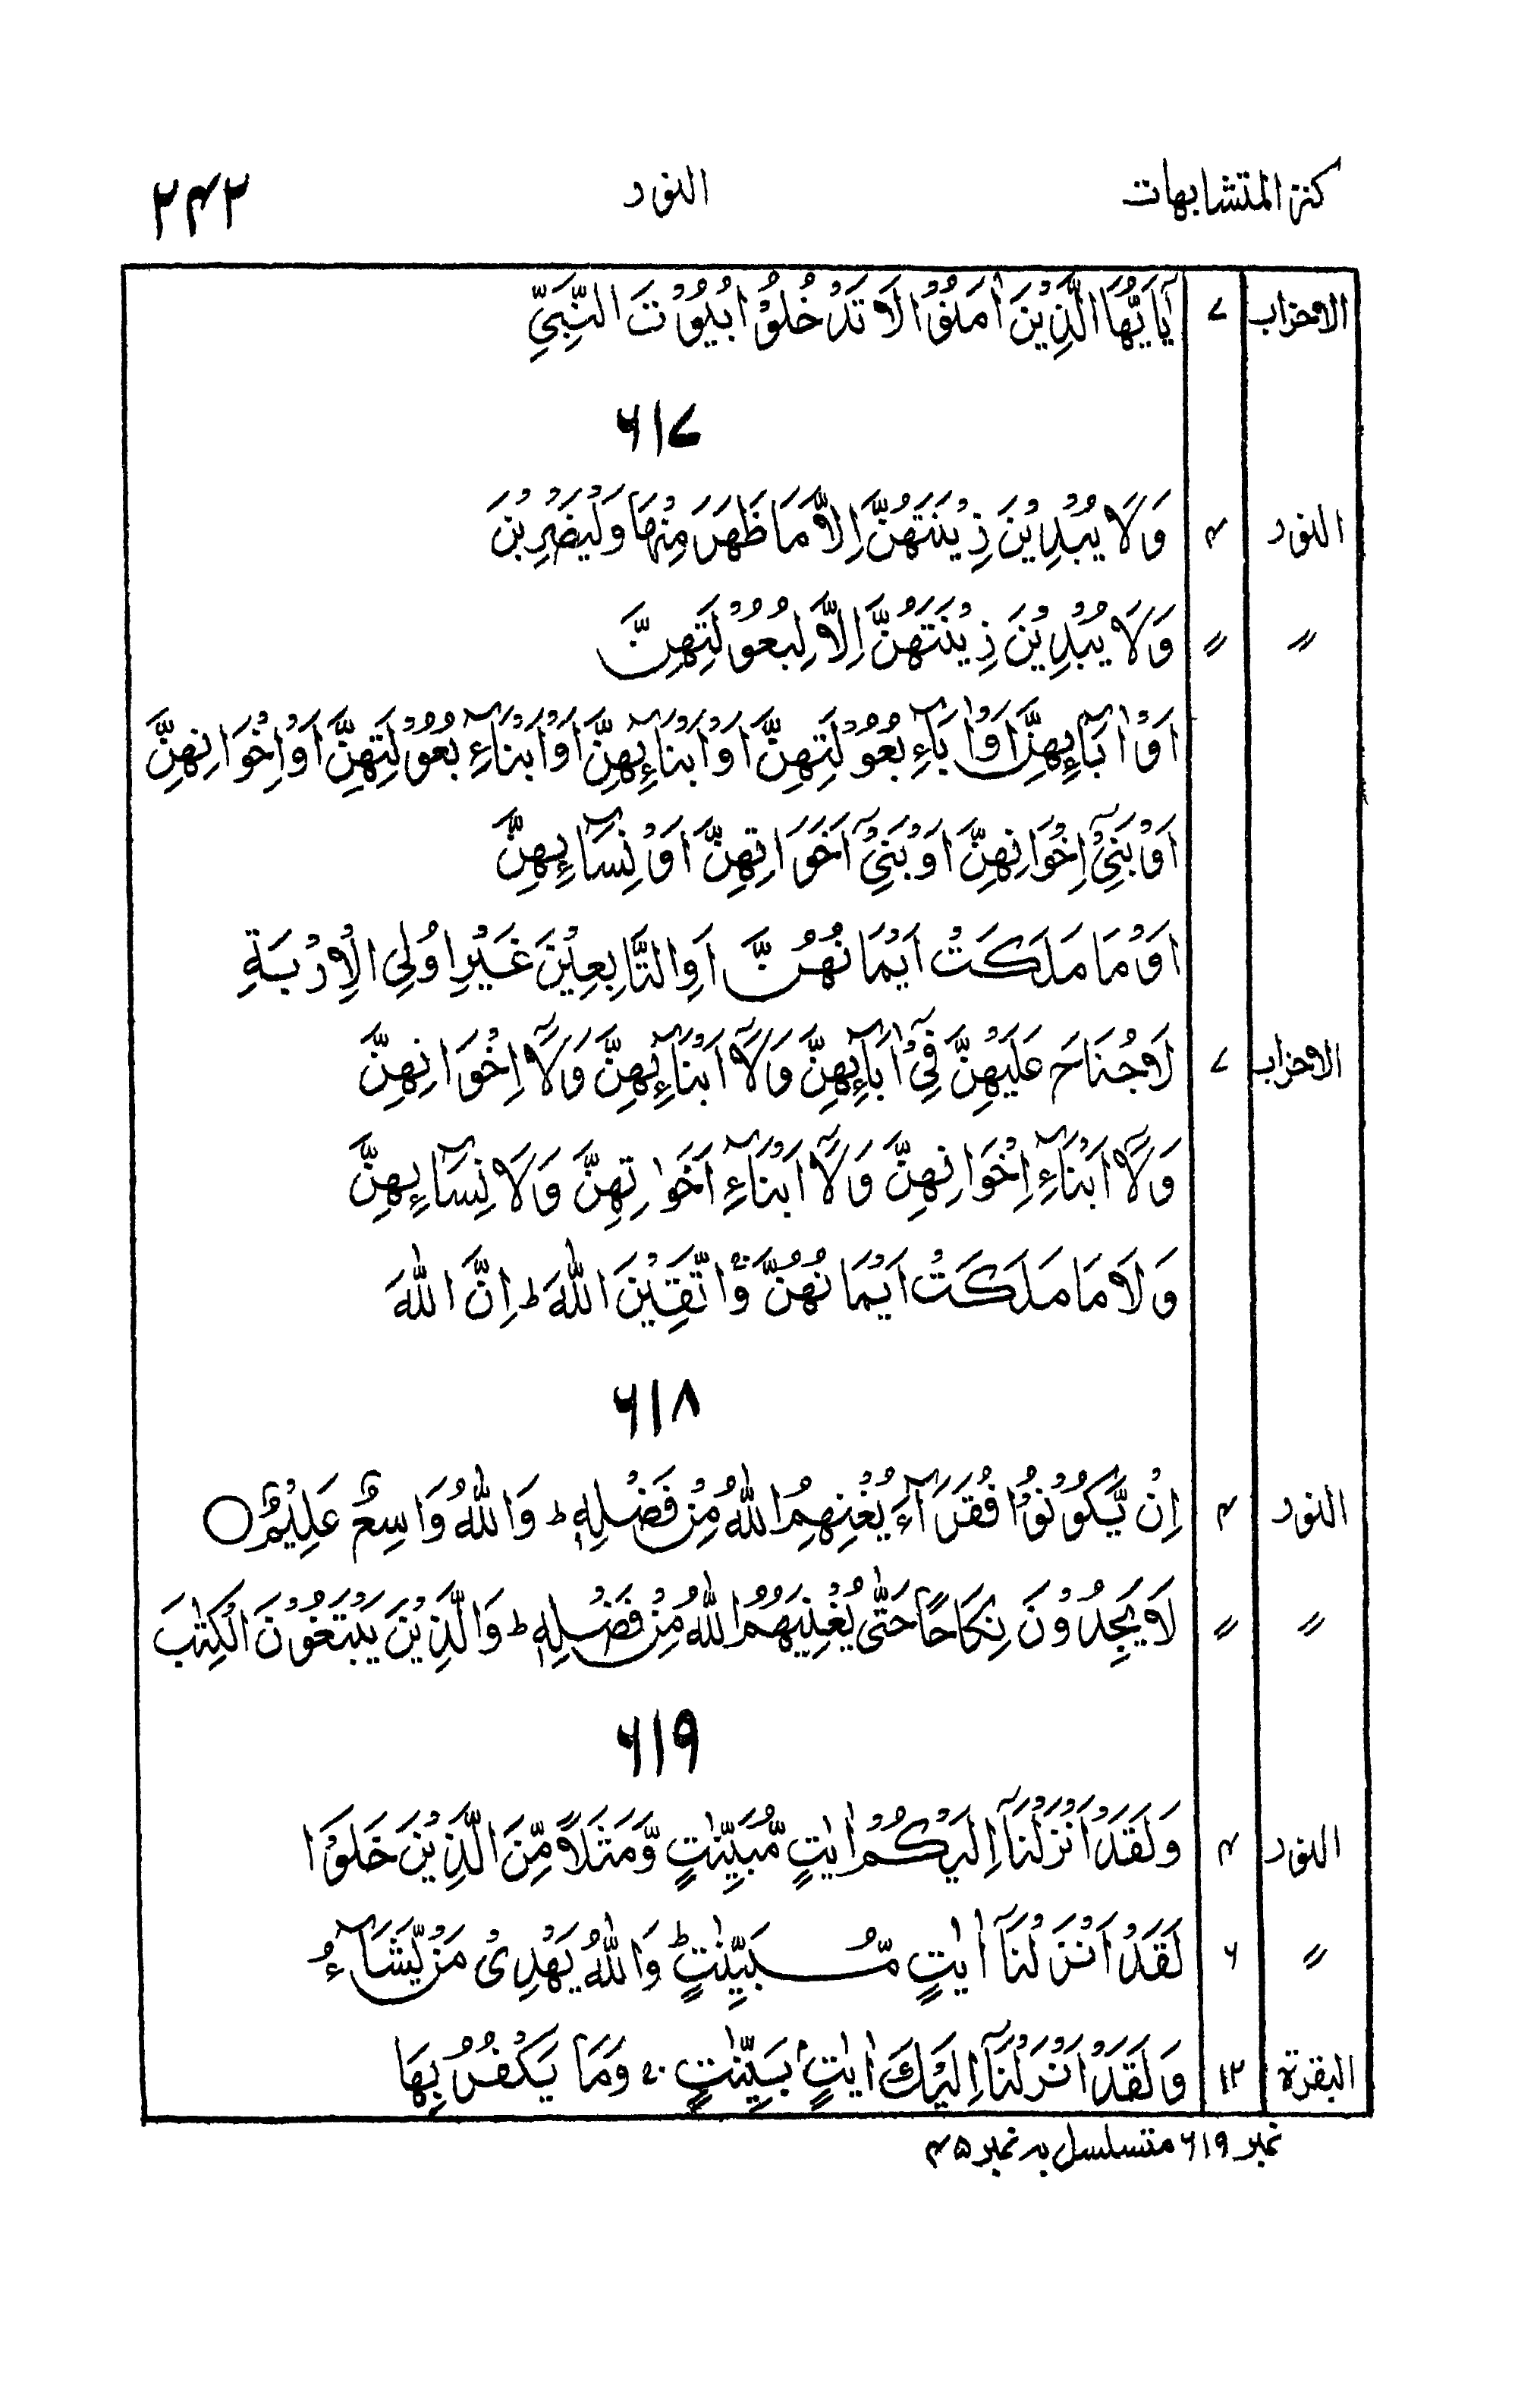 كنز المتشابهات النور ۲۴۲
الاحزاب ۷ يٰۤاَيُّهَا الَّذِيْنَ اٰمَنُوْا لَا تَدْخُلُوْا بُيُوْتَ النَّبِيِّ
۶۱۷
النور ۴ وَلَا يُبْدِيْنَ زِيْنَتَهُنَّ اِلَّا مَا ظَهَرَ مِنْهَا وَلْيَضْرِبْنَ
〃 〃 وَلَا يُبْدِيْنَ زِيْنَتَهُنَّ اِلَّا لِبُعُوْلَتِهِنَّ
اَوْ اٰبَآئِهِنَّ اَوْ اٰبَآءِ بُعُوْلَتِهِنَّ اَوْ اَبْنَآئِهِنَّ اَوْ اَبْنَآءِ بُعُوْلَتِهِنَّ اَوْ اِخْوَانِهِنَّ
اَوْ بَنِيْۤ اِخْوَانِهِنَّ اَوْ بَنِيْۤ اَخَوَاتِهِنَّ اَوْ نِسَآئِهِنَّ
اَوْ مَا مَلَكَتْ اَيْمَانُهُنَّ اَوِ التَّابِعِيْنَ غَيْرِ اُولِي الْاِرْبَةِ
الاحزاب ۷ لَا جُنَاحَ عَلَيْهِنَّ فِيْۤ اٰبَآئِهِنَّ وَلَاۤ اَبْنَآئِهِنَّ وَلَاۤ اِخْوَانِهِنَّ
وَلَاۤ اَبْنَآءِ اِخْوَانِهِنَّ وَلَاۤ اَبْنَآءِ اَخَوٰتِهِنَّ وَلَا نِسَآئِهِنَّ
وَلَا مَا مَلَكَتْ اَيْمَانُهُنَّ وَاتَّقِيْنَ اللّٰهَ ؕ اِنَّ اللّٰهَ
۶۱۸
النور ۴ اِنْ يَّكُوْنُوْا فُقَرَآءَ يُغْنِهِمُ اللّٰهُ مِنْ فَضْلِهٖ ؕ وَاللّٰهُ وَاسِعٌ عَلِيْمٌ ○
〃 〃 لَا يَجِدُوْنَ نِكَاحًا حَتّٰى يُغْنِيَهُمُ اللّٰهُ مِنْ فَضْلِهٖ ؕ وَالَّذِيْنَ يَبْتَغُوْنَ الْكِتٰبَ
۶۱۹
النور ۴ وَلَقَدْ اَنْزَلْنَاۤ اِلَيْكُمْ اٰيٰتٍ مُّبَيِّنٰتٍ وَّمَثَلًا مِّنَ الَّذِيْنَ خَلَوْا
〃 ۶ لَقَدْ اَنْزَلْنَاۤ اٰيٰتٍ مُّبَيِّنٰتٍ ؕ وَاللّٰهُ يَهْدِيْ مَنْ يَّشَآءُ
البقرة ۱۲ وَلَقَدْ اَنْزَلْنَاۤ اِلَيْكَ اٰيٰتٍۭ بَيِّنٰتٍ ۚ وَمَا يَكْفُرُ بِهَا
نمبر ۶۱۹ متسلسل بہ نمبر ۴۵